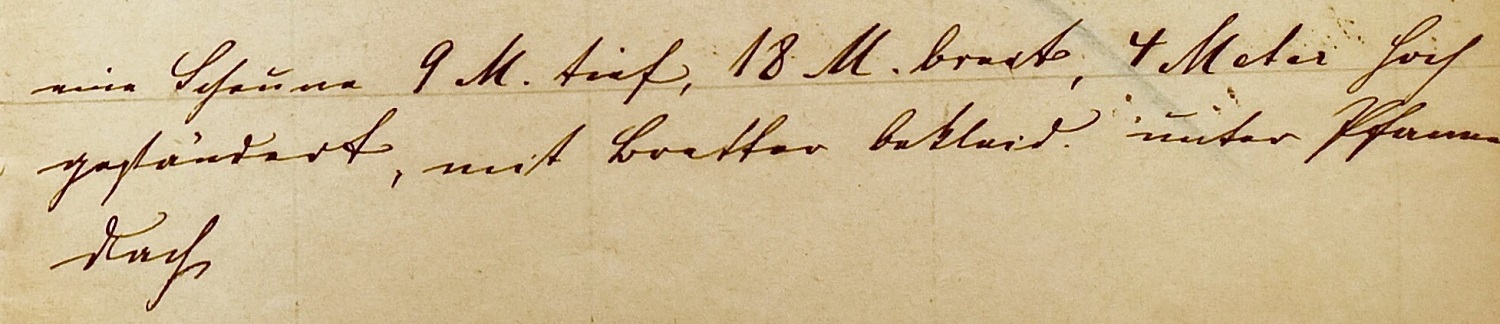 eine Scheune 9 M. tief, 18 M. breit, 4 Meter hoch
geständert, mit Bretter bekleid. unter Pfannen
dach